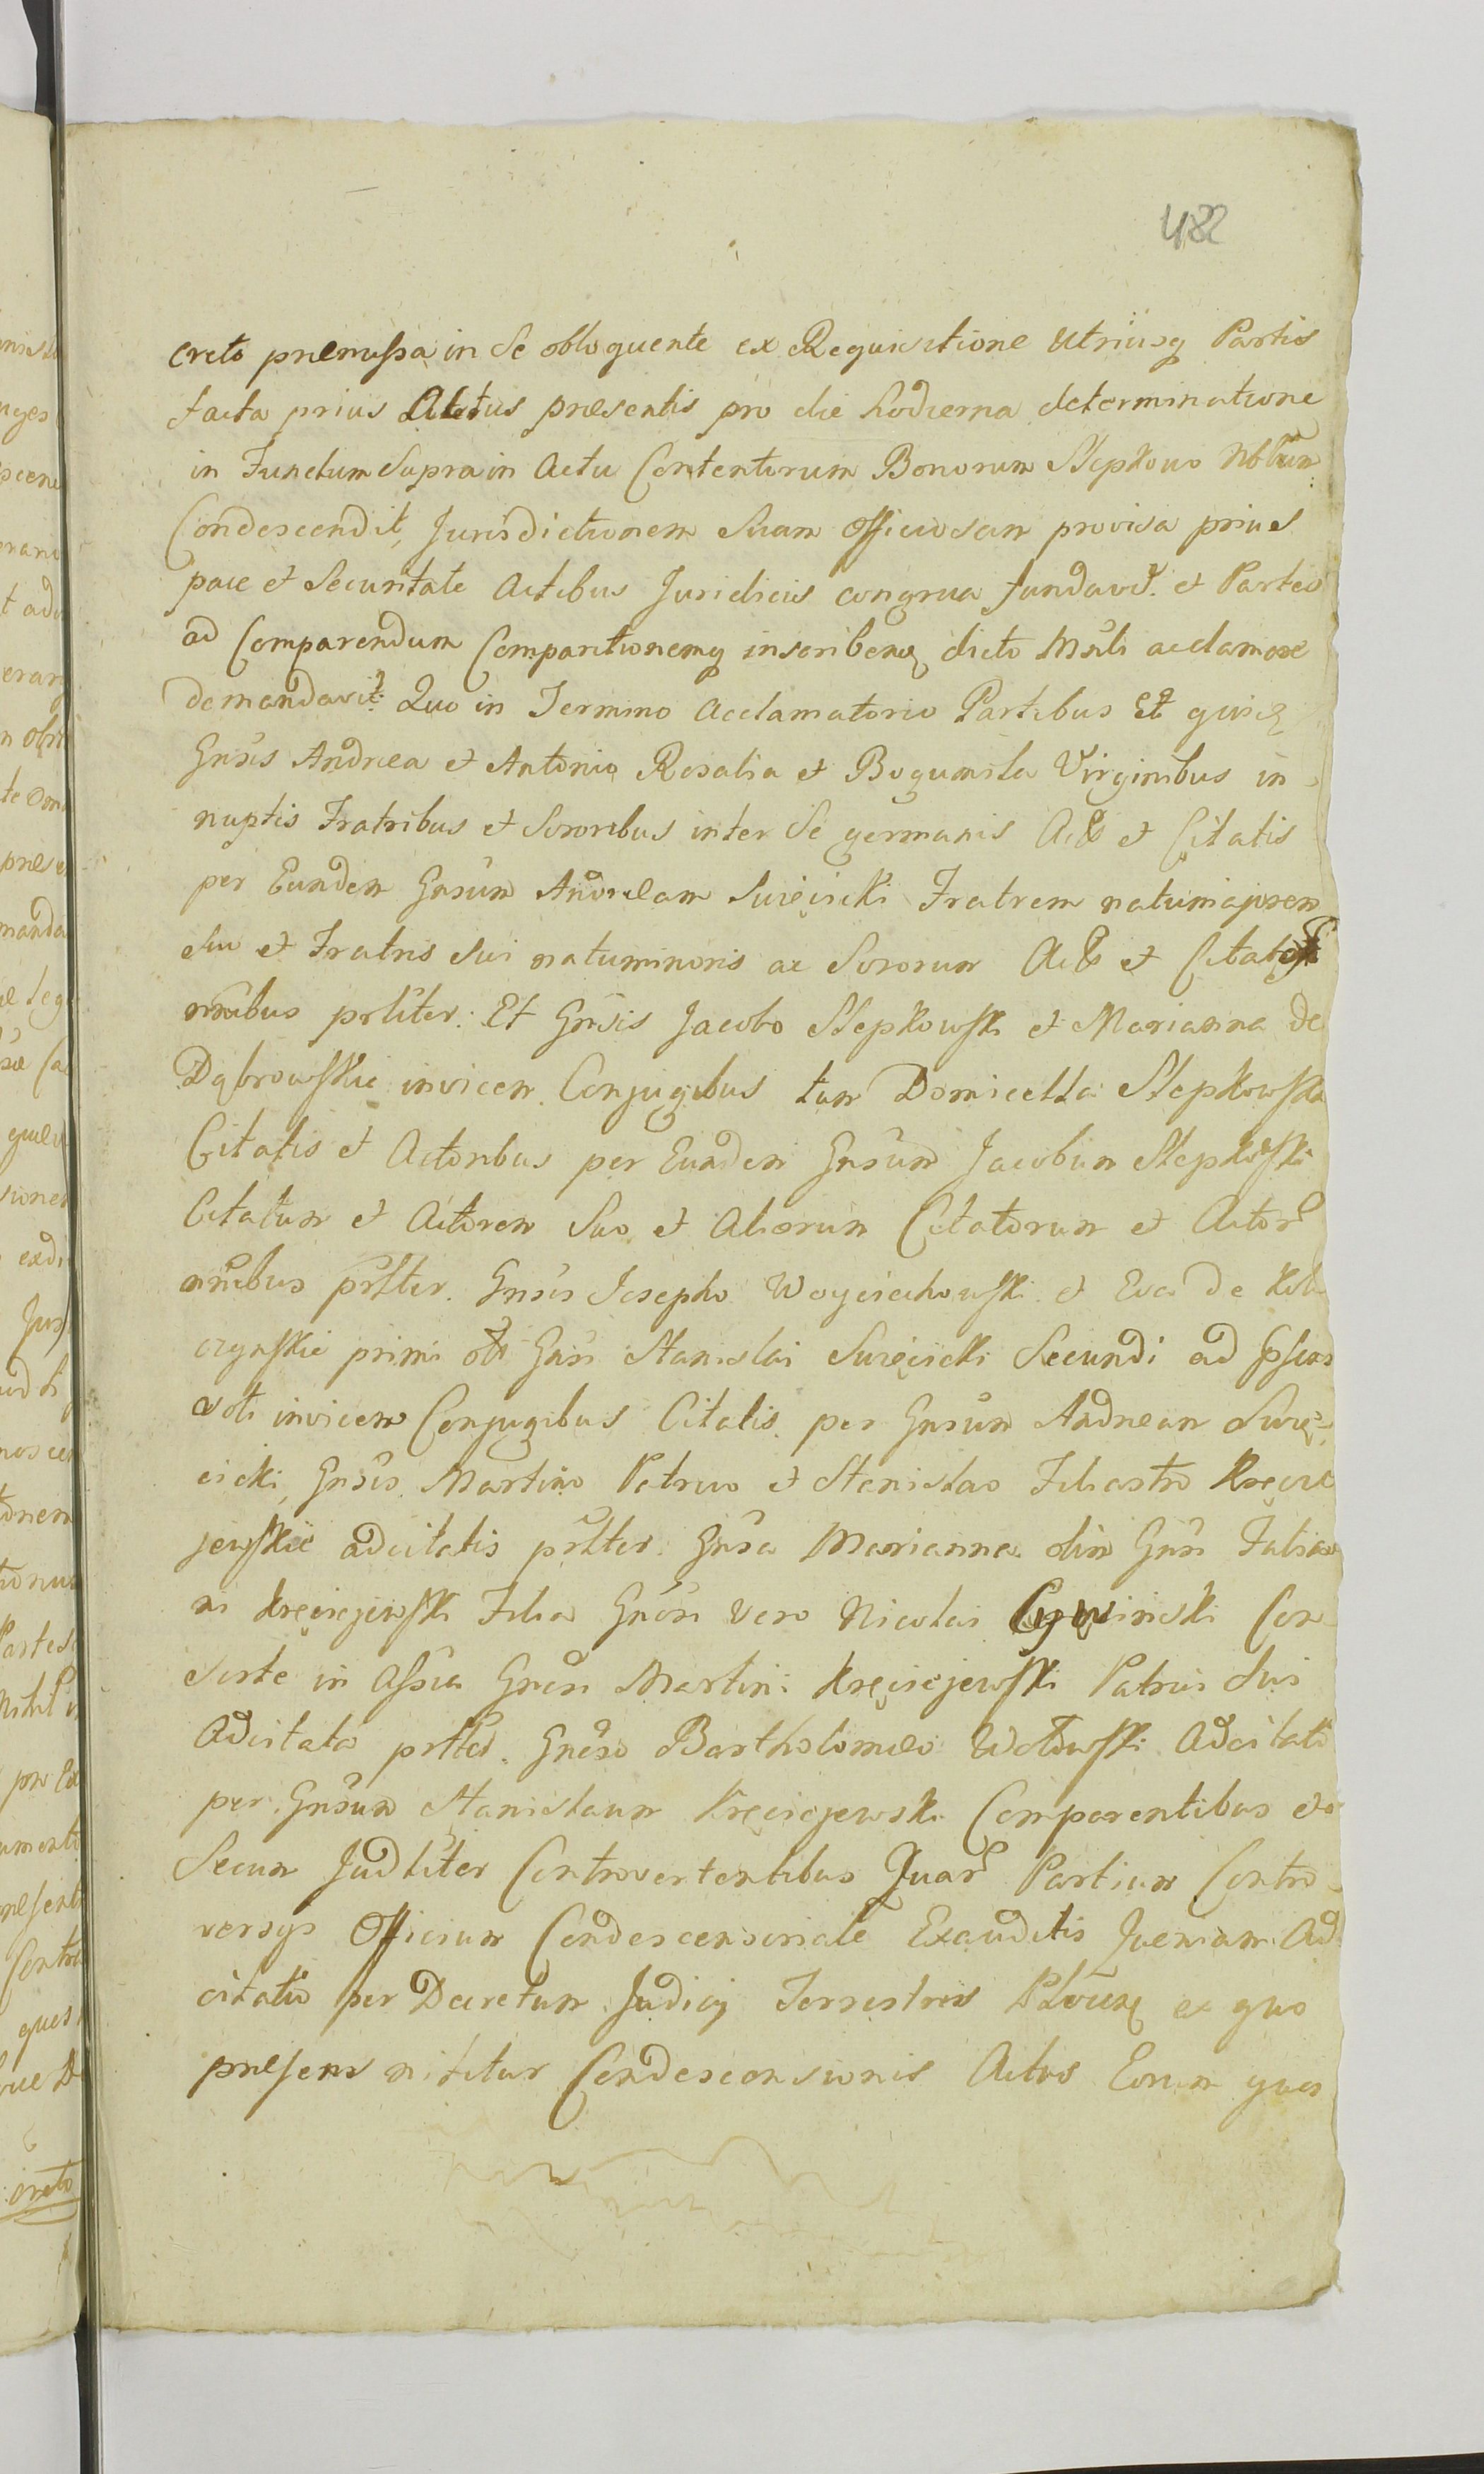 482
creto præmissa in Se obloquente ex Requisitione Utriusq Partis
facta prius Actus præsentis pro die hodierna determinatione
in Fundum Supra in Actu Contentorum Bonorum Slepkowo Nbłium
Condescendit, Jurisdictionem Suam Officiosam provisa prius
pace et Securitate Actibus Juridicis congrua fundavit. et Partes
ad Comparendum Comparitionemq inscribend dicto Mnli acclamare
demandavit. Quo in Termino Acclamatorio Partibus Et quid
Gnsis Andrea et Antonio Rosalia et Bogumila Virginibus in-
nuptis Fratribus et Sororibus inter Se germanis Act et Citatis
per Eundem Gnsum Andream Święcicki Fratrem natumajorem
Suo et Fratris Sui natuminoris ac Sororum Act et Citator
nnibus prliter. Et Gnsis Jacobo Slepkowski et Marianna de
Dąbrowskie invicem Conjugibus tum Domicella Slepkowska
Citatis et Actoribus per Eundem Gnsum Jacobum Slepkowski
Citatum et Actorem Suo et Aliorum Citatorum et Actor
nnibus prlter. Gnsis Josepho Woyciechowski et Eva de Kol
czynskie primi olt Gnsi Stanislai Święcicki Secundi ad Pscns
voti invicem Conjugibus Citatis per Gnsum Andream Swię-
cicki, Gnsis Martino Patruo et Stanislao Filiastro Kręcie
jewskie adcitatis prlter. Gnsa Marianna olim Gnsi Fabia
ni Kręciejewski Filia Gnsi vero Nicolai Cywinski Con-
sorte in Assia Gnsi Martini Kręciejewski Patrui Sui
Adcitata prlter. Gnso Bartholomæo Wołowski Adcitato
per Gnsum Stanislaum Kręciejewski Comparentibus et
Secum Judliter Controvertentibus Quar Partium Contro-
versys Officium Condescensoriale Exauditis Queniam Ad
citatio per Decretum Judicij Terrestris Płocen ex quo
præsens nititur Condescensionis Actus Eorum quos